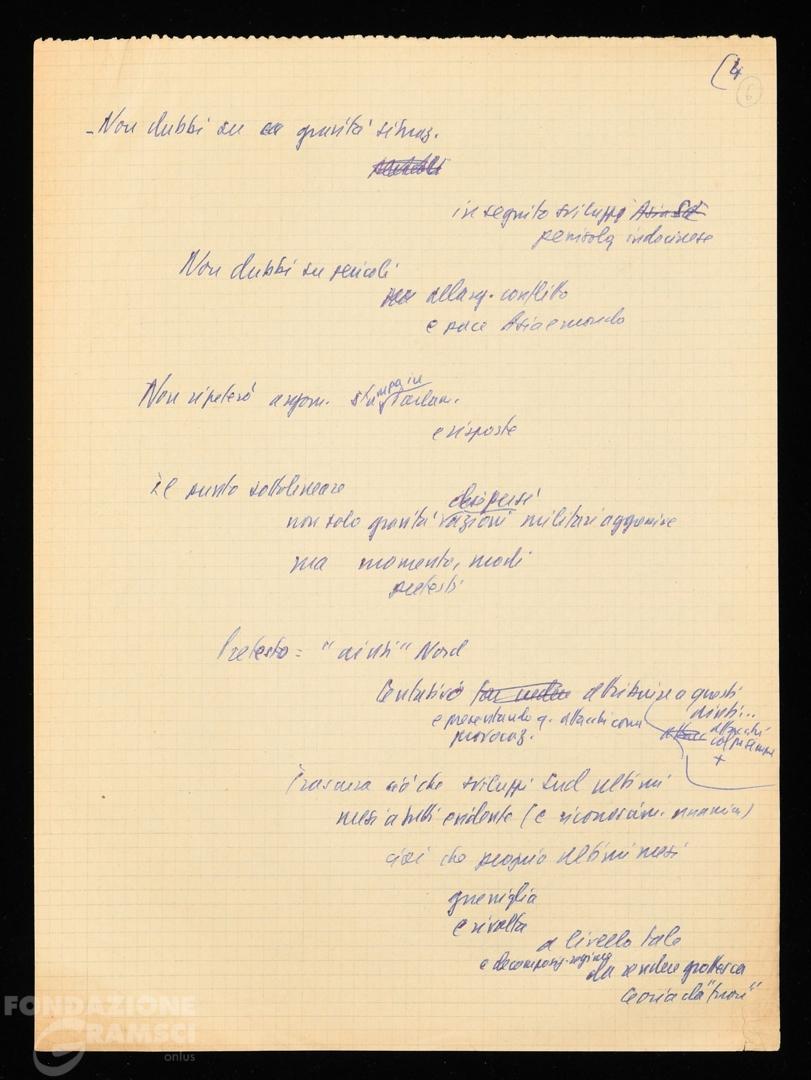 (4
6
- Non dubbi su gravità situaz.
in seguito sviluppi Asia SE
penisola indocinese
Non dubbi su pericoli
allarg. conflitto
e pace Asia e mondo
Non ripeterò argom. stampa in Parlam.
e risposte
È punto sottolineare
non solo gravità azioni militari aggressive
ma momento, modi
pretesti
Pretesto = "aiuti" Nord
tentativo attribuire a questi
aiuti...
e presentando q. attacchi come
provocaz.
attacchi
+
Trascura ciò che sviluppi Sud ultimi
mesi a tutti evidente (e riconoscim. unanim)
cioè che proprio ultimi mesi
guerriglia
e rivolta
a livello tale
e decompos. regime
da rendere grottesca
teoria da "fuori"
FONDAZIONE
GRAMSCI
onlus